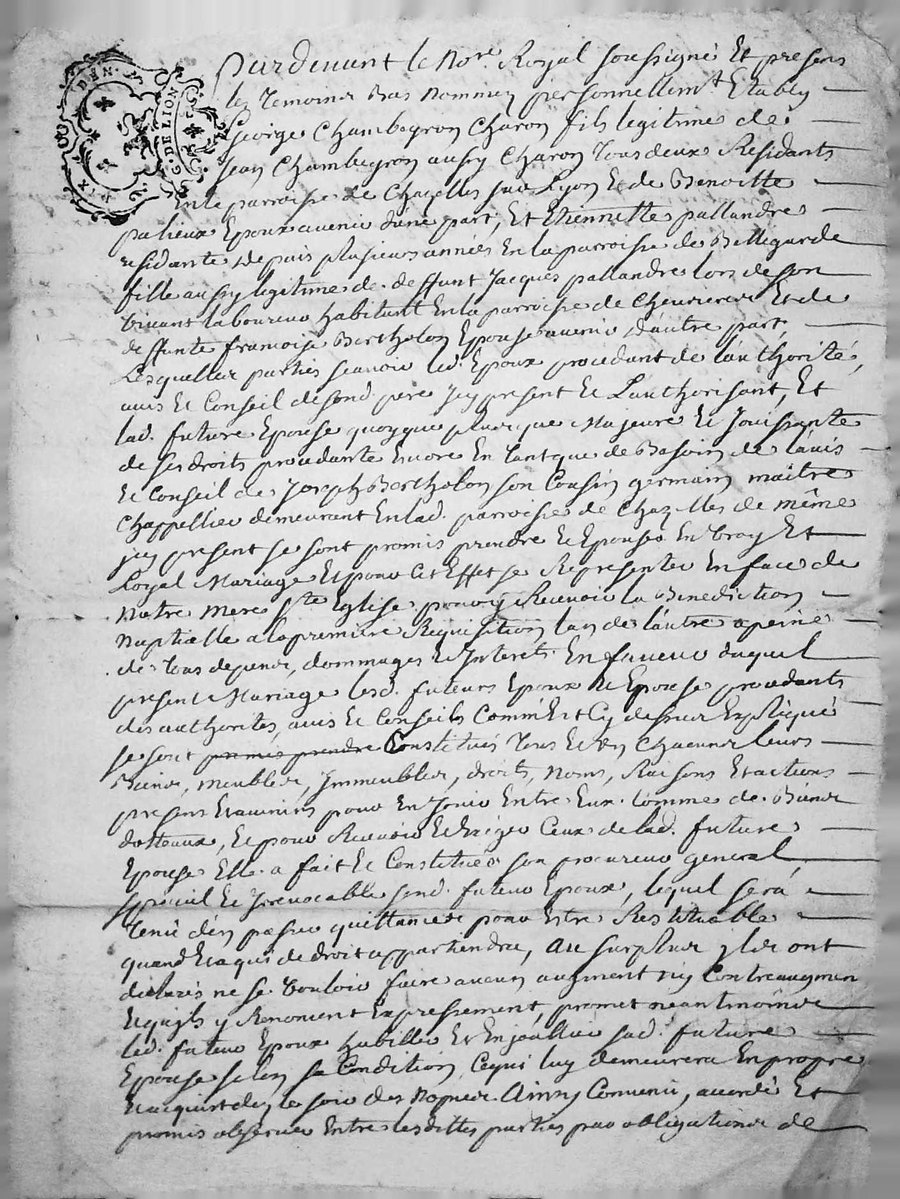 DIX DEN.
G. DE LION
Pardevant le Nore. Royal soussigné Et presens
les temoins bas nommés personnellemt. Etably
George Chambeyron Charon fils legitime de
Jean Chambeyron aussy Charon tous deux Residants
En la parroisse de Chazelles sur Lyon Et de Benoitte
palieux Epoux avenir d'une part, Et Etiennette pallandre
residante depuis plusieurs années En la parroisse de Bellegarde
fille aussy legitime de deffunt Jacques pallandre lors de son
vivant laboureur habitant En la parroisse de Chevrieres Et de
deffunte francoise Bertholon Epouse avenir d'autre part,
Lesquelles parties scavoir led. Epoux procedant de l'authorité,
avis Et Conseil de sond. pere Icy present Et L'authorisant, Et
lad. future Epouse quoyque plusque Majeure Et Jouissante
de ses droits procedante Encore En tant que de Besoin de l'avis
Et Conseil de Joseph Bertholon son Cousin germain maître
Chappellier demeurant En lad. parroisse de Chazelles de même
icy present se sont promis prendre Et Epouser En vray Et
Loyal Mariage Et pour Cet Effet se Representer En face de
Notre Mere Ste Eglise pour y Recevoir la Benediction
Nuptialle a la premiere Requisition l'un de l'autre a peine
de tous depens, dommages Et Interets. En faveur duquel
present Mariage lesd. futeurs Epoux Et Epouse procedants
des authorités, avis Et Conseils Comme Est Cy dessus Expliqué
se sont promis prendre Constitués tous Et Un Chacuns leurs
Biens, meubles, Immeubles, droits, noms, Raisons Et actions
presens Et avenirs pour En Jouir Entre Eux Comme de Biens
dotteaux, Et pour Recevoir Et Exiger Ceux de lad. future
Epouse Elle a fait Et Constitué son procureur general,
special Et Irrevocable sond. futeur Epoux, lequel sera
tenu d'en passer quittances pour Estre Restituable
quand Et a qui de droit appartiendra, au surplus ils ont
declarés ne se vouloir faire aucun augment ny Contreaugmen
Et quils y Renoncent Expressement, promet neantmoins
led. futeur Epoux habiller Et Enjoailler sad. future
Epouse selon sa Condition, Ce qui luy demeurera En propre
Et acquis des le soir des Nopces. Ainsy Convenu, accordé Et
promis observer Entre lesdittes parties par obligations de